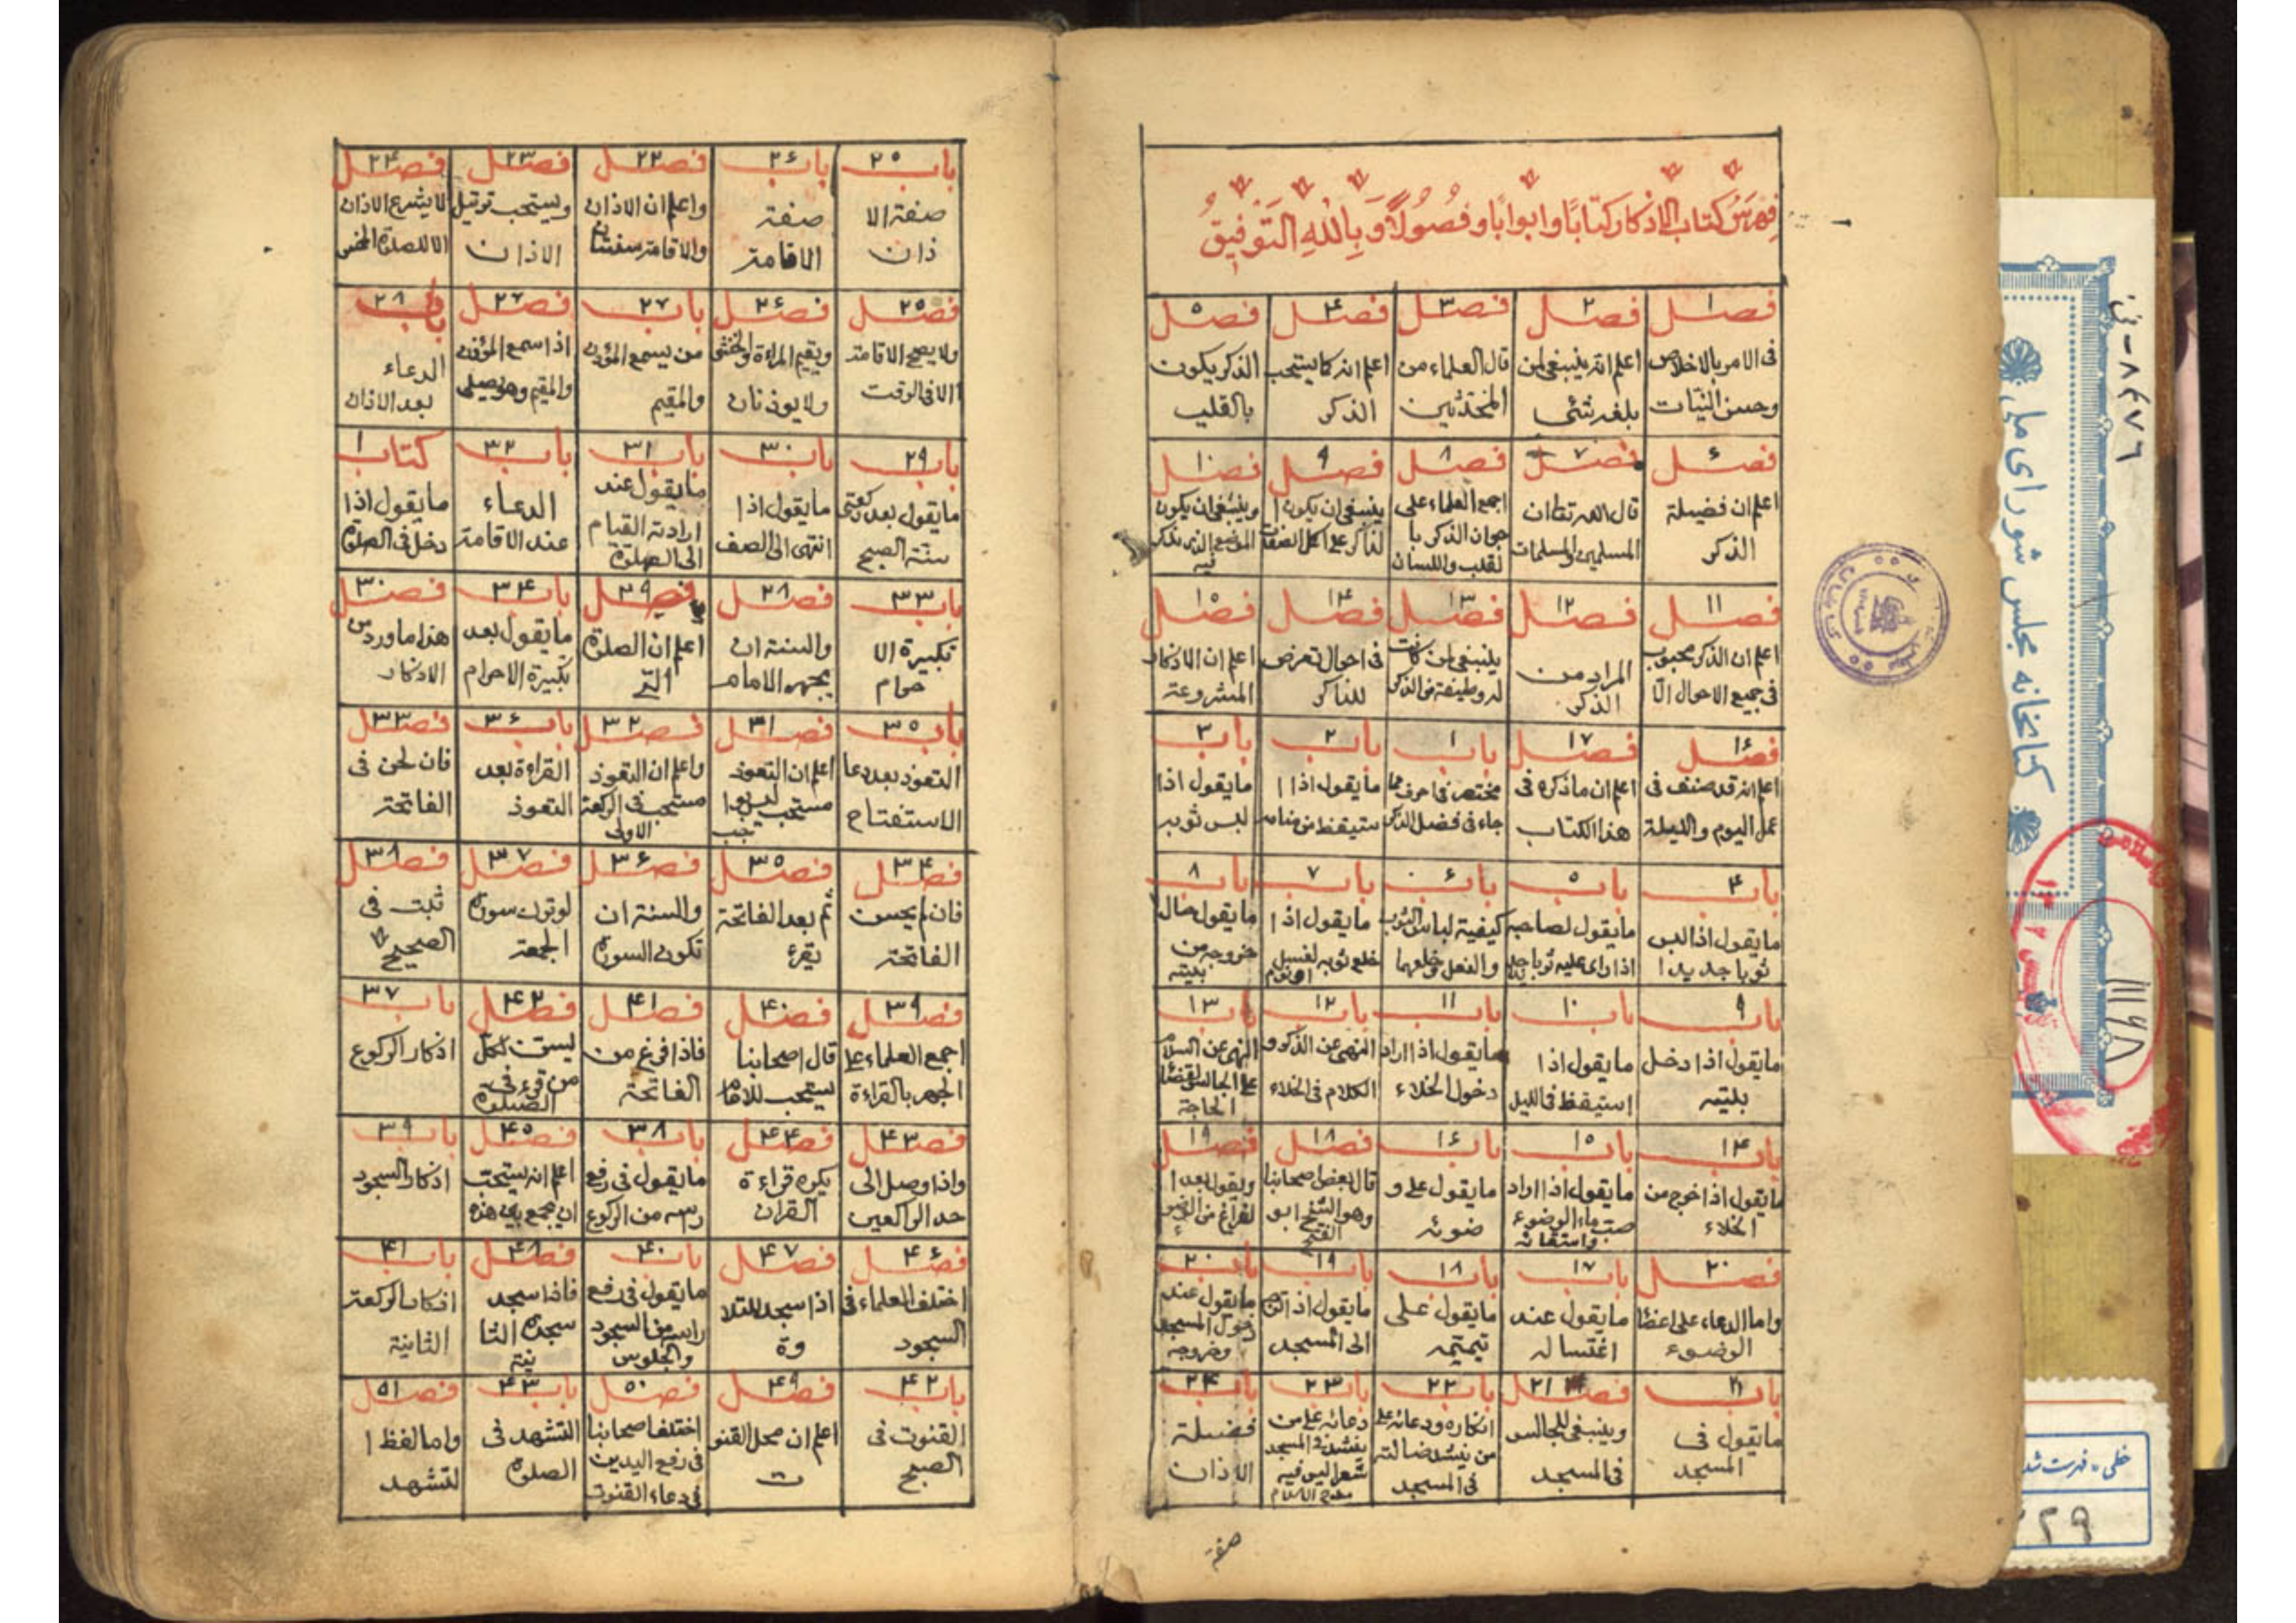 فهرس كتاب الاذكار كتابا وابوابا وفصولا وبالله التوفيق
فصل ١
فى الامر بالاخلاص
وحسن النيات
فصل ٢
اعلم انه ينبغى لمن
بلغه شئ
فصل ٣
قال العلماء من
المحدثين
فصل ۴
اعلم انه كما يستحب
الذكر
فصل ٥
الذكر يكون
بالقلب
فصل ۶
اعلم ان فضيلة
الذكر
فصل ٧
قال الله تعا ان
المسلمين والمسلمات
فصل ٨
اجمع العلماء على
جواز الذكر با
لقلب واللسان
فصل ٩
ينبغى ان يكون ا
لذاكر على اكمل الصفات
فصل ١٠
وينبغى ان يكون
الموضع الذى يذكر
فيه
فصل ١١
اعلم ان الذكر محبوب
فى جميع الاحوال الا
فصل ١٢
المراد من
الذكر
فصل ١٣
ينبغى لمن كانت
له وظيفة من الذكر
فصل ١۴
فى احوال تعرض
للذاكر
فصل ١٥
اعلم ان الاذكار
المشروعة
فصل ١۶
اعلم انه قد صنف فى
عمل اليوم والليلة
فصل ١٧
اعلم ان ما ذكره فى
هذا الكتاب
باب ١
مختصر فى احرف مما
جاء فى فضل الذكر
باب ٢
ما يقول اذا ا
ستيقظ من منامه
باب ٣
ما يقول اذا
لبس ثوبه
باب ۴
ما يقول اذا لبس
ثوبا جديدا
باب ٥
ما يقول لصاحبه
اذا راى عليه ثوبا جديدا
باب ۶
كيفية لباس الثوب
والنعل وخلعهما
باب ٧
ما يقول اذا
خلع ثوبه لغسل
او نوم
باب ٨
ما يقول حال
خروجه من
بيته
باب ٩
ما يقول اذا دخل
بيته
باب ١٠
ما يقول اذا
استيقظ فى الليل
باب ١١
ما يقول اذا اراد
دخول الخلاء
باب ١٢
النهى عن الذكر و
الكلام فى الخلاء
باب ١٣
النهى عن السلام
على الجالس لقضا
الحاجة
باب ١۴
ما يقول اذا خرج من
الخلاء
باب ١٥
ما يقول اذا اراد
صب ماء الوضوء
واستقائه
باب ١۶
ما يقول على و
ضوئه
فصل ١٨
قال بعض اصحابنا
وهو الشيخ ابو
الفتح
فصل ١٩
ويقول بعد ا
لفراغ من الوضو
ء
فصل ٢٠
واما الدعاء على اعضا
الوضوء
باب ١٧
ما يقول عند
اغتساله
باب ١٨
ما يقول على
تيممه
باب ١٩
ما يقول اذا توجه
الى المسجد
باب ٢٠
ما يقول عند
دخول المسجد
وخروجه
باب ٢١
ما يقول فى
المسجد
فصل ٢١
وينبغى للجالس
فى المسجد
باب ٢٢
انكاره ودعائه على
من ينشد ضالته
فى المسجد
باب ٢٣
دعائه على من
ينشد فى المسجد
شعرا ليس فيه
مدح الاسلام
باب ٢۴
فضيلة
الاذان
صفة
باب ٢٥
صفة الا
ذان
باب ٢۶
صفة
الاقامة
فصل ٢٢
واعلم ان الاذان
والاقامة سنتان
فصل ٢٣
ويستحب ترتيل
الاذان
فصل ٢۴
لا يشرع الاذان
الا للصلوة الخمس
فصل ٢٥
ولا يصح الاقامة
الا فى الوقت
فصل ٢۶
ويقيم المراة والخنثى
ولا يوذنان
باب ٢٧
من يسمع المؤذن
والمقيم
فصل ٢٧
اذا سمع المؤذن
والمقيم وهو يصلى
باب ٢٨
الدعاء
بعد الاذان
باب ٢٩
ما يقول بعد ركعتى
سنة الصبح
باب ٣٠
ما يقول اذا
انتهى الى الصف
باب ٣١
ما يقول عند
ارادته القيام
الى الصلوة
باب ٣٢
الدعاء
عند الاقامة
كتاب ١
ما يقول اذا
دخل فى الصلوة
باب ٣٣
تكبيرة الا
حرام
فصل ٢٨
والسنة ان
يجهر الامام
فصل ٢٩
اعلم ان الصلوة
التى
باب ٣۴
ما يقول بعد
تكبيرة الاحرام
فصل ٣٠
هذا ما ورد من
الاذكار
باب ٣٥
التعوذ بعد دعا
الاستفتاح
فصل ٣١
اعلم ان التعوذ
مستحب ليس بوا
جب
فصل ٣٢
واعلم ان التعوذ
مستحب فى الركعة
الاولى
باب ٣۶
القراءة بعد
التعوذ
فصل ٣٣
فان لحن فى
الفاتحة
فصل ٣۴
فان لم يحسن
الفاتحة
فصل ٣٥
ثم بعد الفاتحة
يقرء
فصل ٣۶
والسنة ان
تكون السورة
فصل ٣٧
لو ترك سورة
الجمعة
فصل ٣٨
ثبت فى
الصحيح
فصل ٣٩
اجمع العلماء على
الجهر بالقراءة
فصل ۴٠
قال اصحابنا
يستحب للامام
فصل ۴١
فاذا فرغ من
الفاتحة
فصل ۴٢
ليسن لكل
من قرء فى
الصلوة
باب ٣٧
اذكار الركوع
فصل ۴٣
واذا وصل الى
حد الراكعين
فصل ۴۴
يكره قراءة
القران
باب ٣٨
ما يقول فى رفع
رسه من الركوع
فصل ۴٥
اعلم انه يستحب
ان يجمع بين هذه
باب ٣٩
اذكار السجود
فصل ۴۶
اختلف العلماء فى
السجود
فصل ۴٧
اذا سجد للتلا
وة
باب ۴٠
ما يقول فى رفع
راسه من السجود
والجلوس
فصل ۴٨
فاذا سجد
سجدة الثا
نية
باب ۴١
اذكار الركعة
الثانية
باب ۴٢
القنوت فى
الصبح
فصل ۴٩
اعلم ان محل القنو
ت
فصل ٥٠
اختلف اصحابنا
فى رفع اليدين
فى دعاء القنوت
باب ۴٣
التشهد فى
الصلوة
فصل ٥١
واما لفظ ا
لتشهد
كتابخانه مجلس شوراى ملى
خطى - فهرست شد